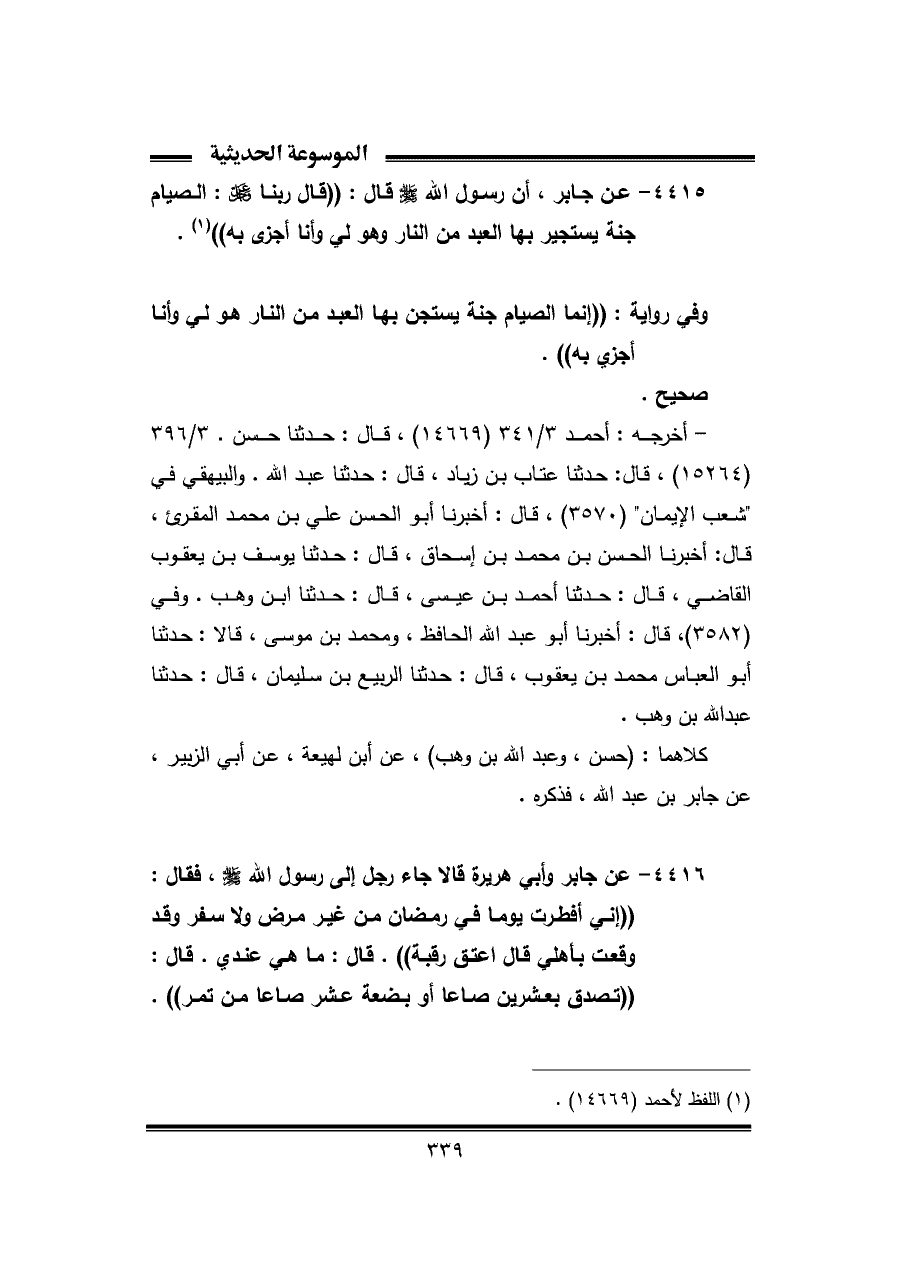 الموسوعة الحديثية
٤٤١٥- عن جابر ، أن رسول الله ﷺ قال : ((قال ربنا ﷻ : الصيام
جنة يستجير بها العبد من النار وهو لي وأنا أجزى به))(١) .
وفي رواية : ((إنما الصيام جنة يستجن بها العبد من النار هو لي وأنا
أجزي به)) .
صحيح .
- أخرجه : أحمد ٣٤١/٣ (١٤٦٦٩) ، قال : حدثنا حسن . ٣٩٦/٣
(١٥٢٦٤) ، قال: حدثنا عتاب بن زياد ، قال : حدثنا عبد الله . والبيهقي في
"شعب الإيمان" (٣٥٧٠) ، قال : أخبرنا أبو الحسن علي بن محمد المقرئ ،
قال: أخبرنا الحسن بن محمد بن إسحاق ، قال : حدثنا يوسف بن يعقوب
القاضي ، قال : حدثنا أحمد بن عيسى ، قال : حدثنا ابن وهب . وفي
(٣٥٨٢)، قال : أخبرنا أبو عبد الله الحافظ ، ومحمد بن موسى ، قالا : حدثنا
أبو العباس محمد بن يعقوب ، قال : حدثنا الربيع بن سليمان ، قال : حدثنا
عبدالله بن وهب .
كلاهما : (حسن ، وعبد الله بن وهب) ، عن أبن لهيعة ، عن أبي الزبير ،
عن جابر بن عبد الله ، فذكره .
٤٤١٦- عن جابر وأبي هريرة قالا جاء رجل إلى رسول الله ﷺ ، فقال :
((إني أفطرت يوما في رمضان من غير مرض ولا سفر وقد
وقعت بأهلي قال اعتق رقبة)) . قال : ما هي عندي . قال :
((تصدق بعشرين صاعا أو بضعة عشر صاعا من تمر)) .
(١) اللفظ لأحمد (١٤٦٦٩) .
٣٣٩